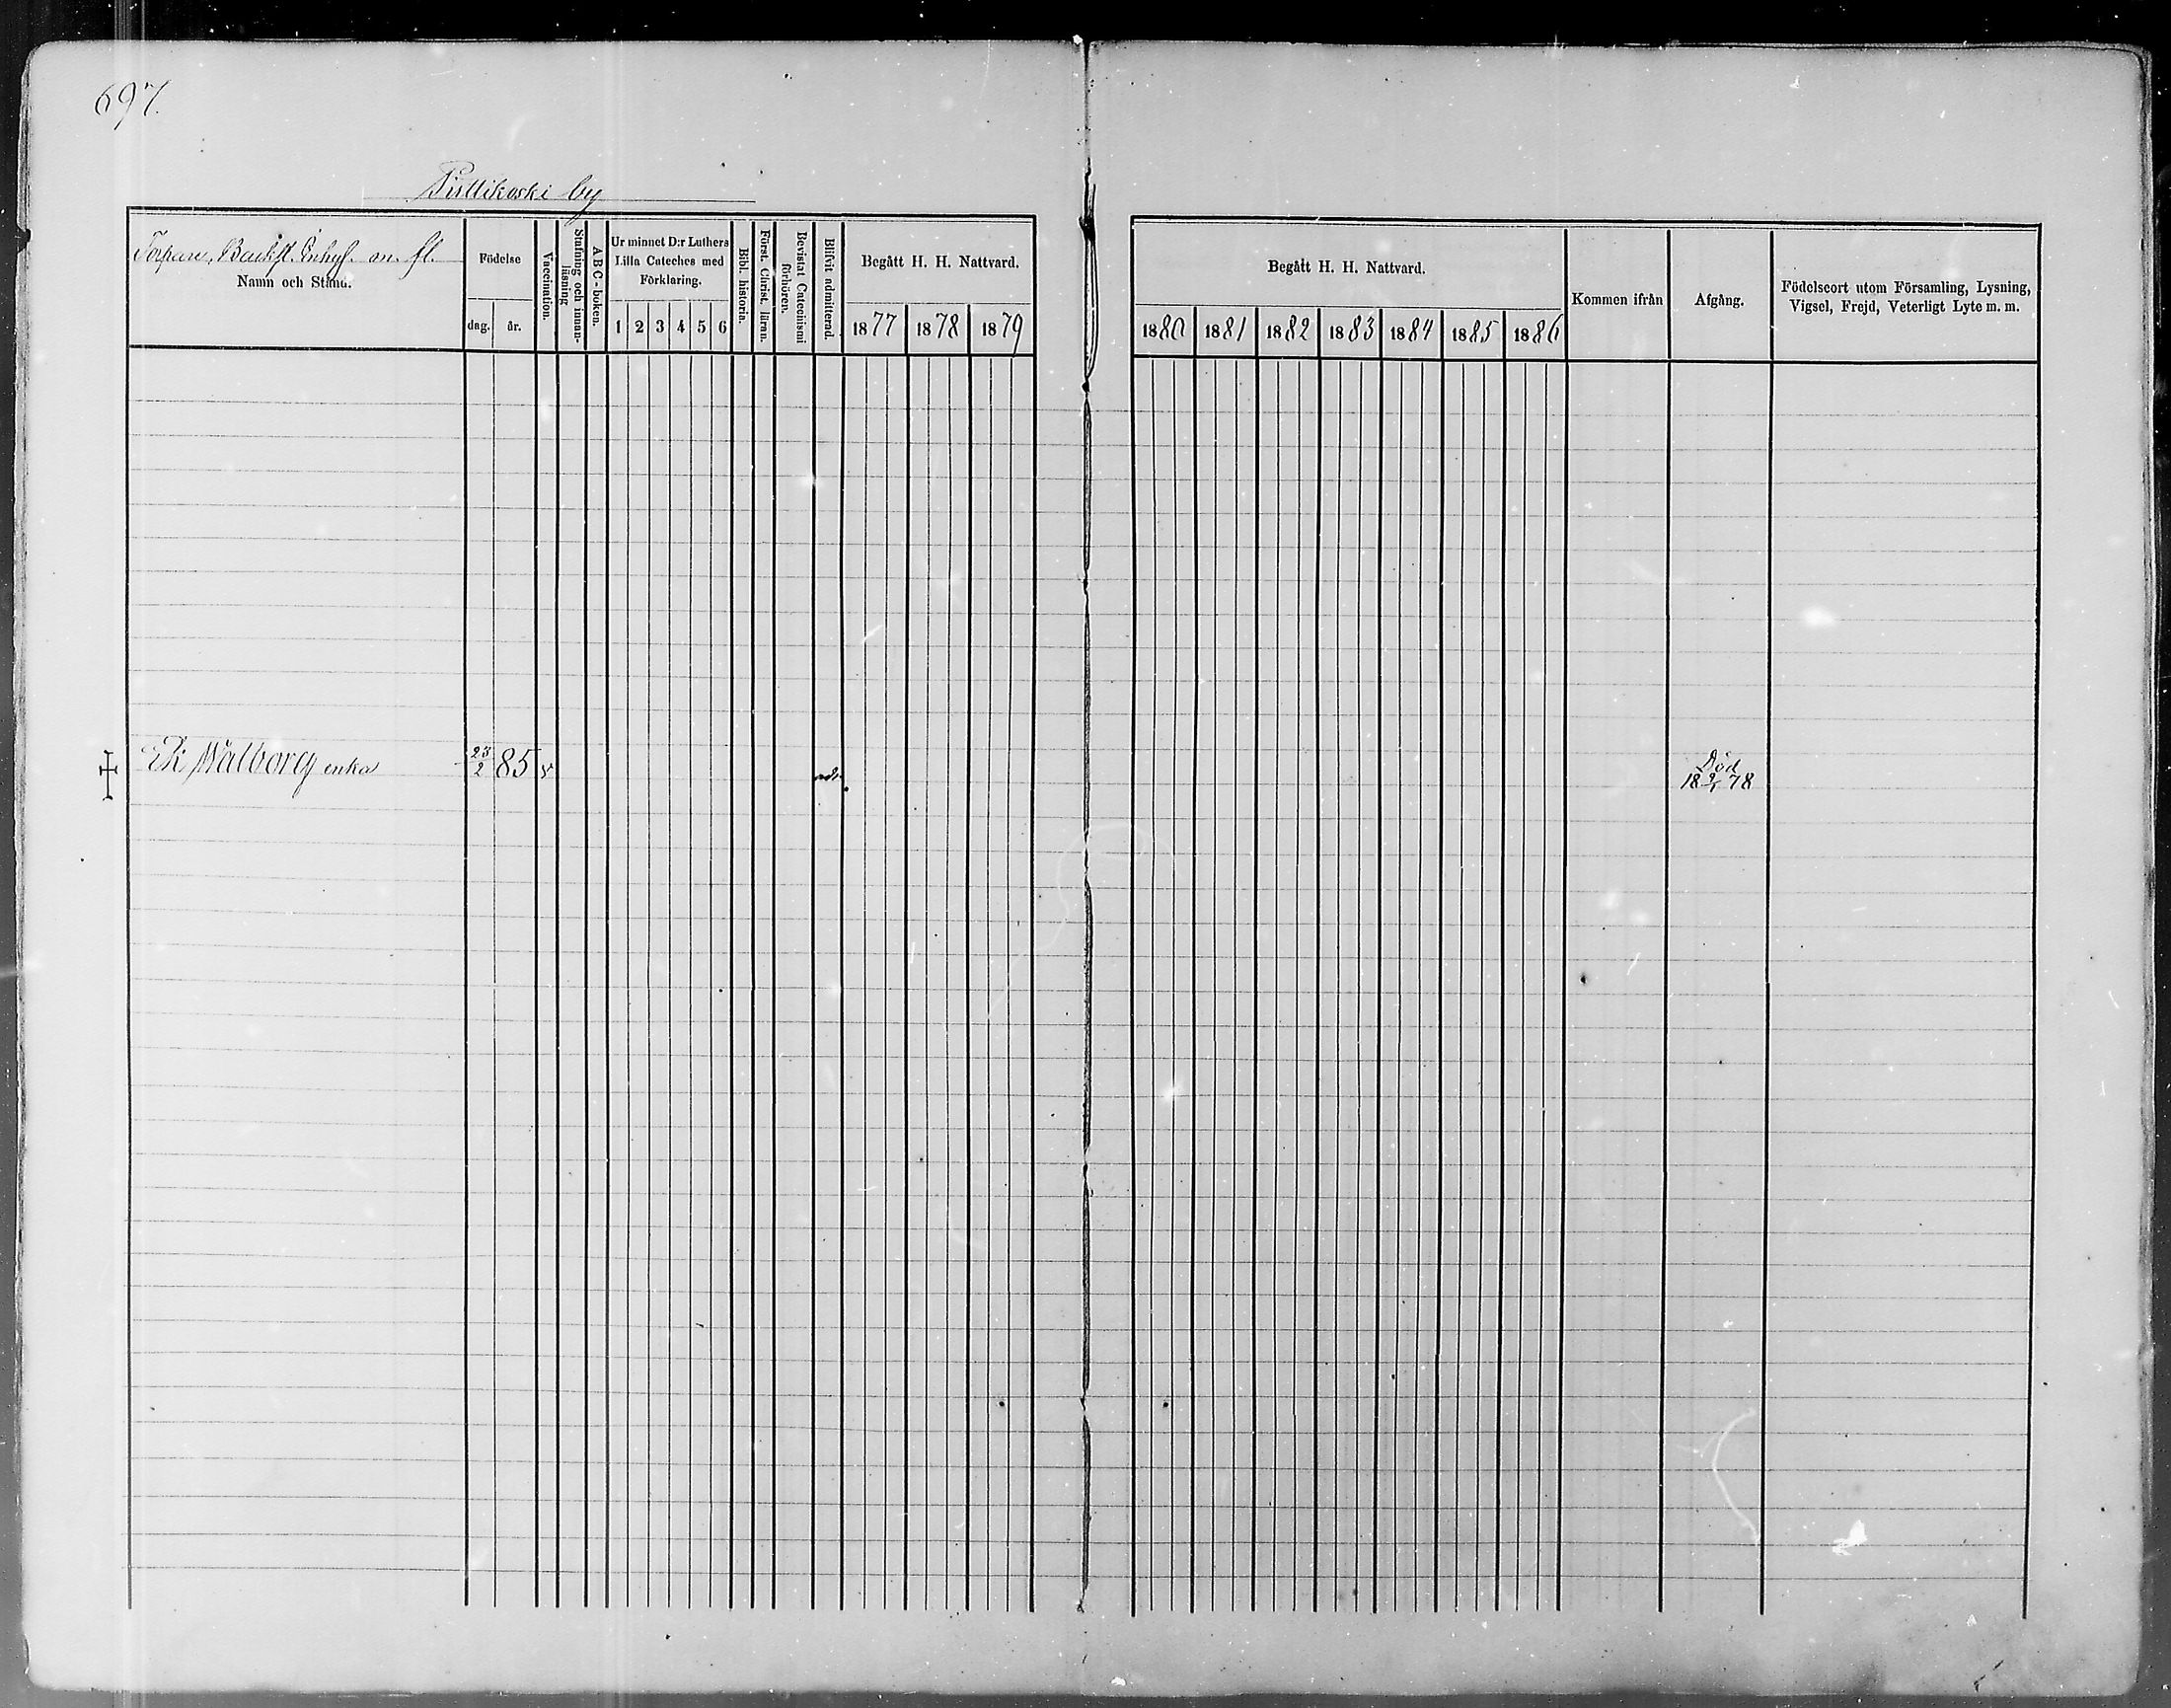 697.
Pistikoski by
Torpare, Backst. Inhys. m. fl.
Namn och Stånd.
Födelse
dag.
år.
Vaccination.
Stafning och innan-
läsning
A B C - boken.
Ur minnet D:r Luthers
Lilla Cateches med
Förklaring.
1 2 3 4 5 6
Bibl. historia.
Först. Christ. läran.
Bevistat Catechismi
förhören.
Blifvit admitterad.
Begått H. H. Nattvard.
1877 1878 1879
Begått H. H. Nattvard.
1880 1881 1882 1883 1884 1885 1886
Kommen ifrån
Afgång.
Födelseort utom Församling, Lysning,
Vigsel, Frejd, Veterligt Lyte m. m.
Ek Walborg enka 23/2 85 v adm.
Död
18 2/1 78